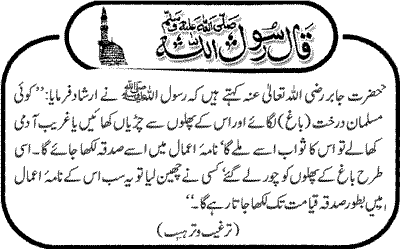 قال رسول اللہ
صلی اللہ علیہ وسلم
حضرت جابر رضی اللہ تعالیٰ عنہ کہتے ہیں کہ رسول اللہ ﷺ نے ارشاد فرمایا: ’’کوئی
مسلمان درخت (باغ) لگائے اور اس کے پھلوں سے چڑیاں کھائیں یا غریب آدمی
کھالے تو اس کا ثواب اسے ملے گا‘ نامۂ اعمال میں اسے صدقہ لکھا جائے گا۔ اسی
طرح باغ کے پھلوں کو چور لے گئے‘ کسی نے چھین لیا تو یہ سب اس کے نامۂ اعمال
میں بطور صدقہ قیامت تک لکھا جاتا رہے گا۔‘‘
(ترغیب و ترہیب)